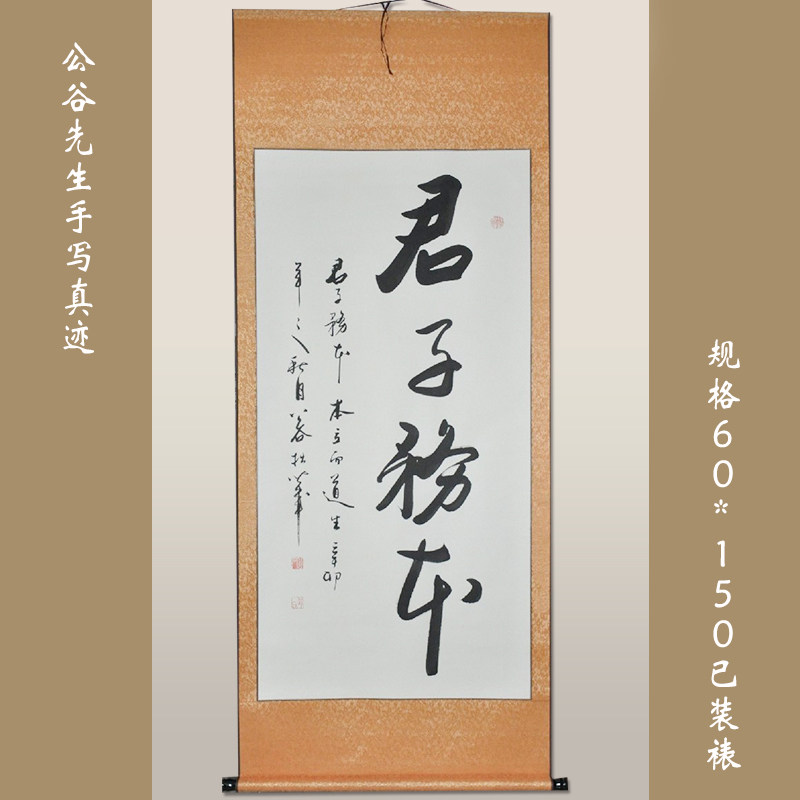 公谷先生手写真迹
君子務本
君子務本 本立而道生 辛卯
年之秋月公谷拙筆
规格60*150已装裱